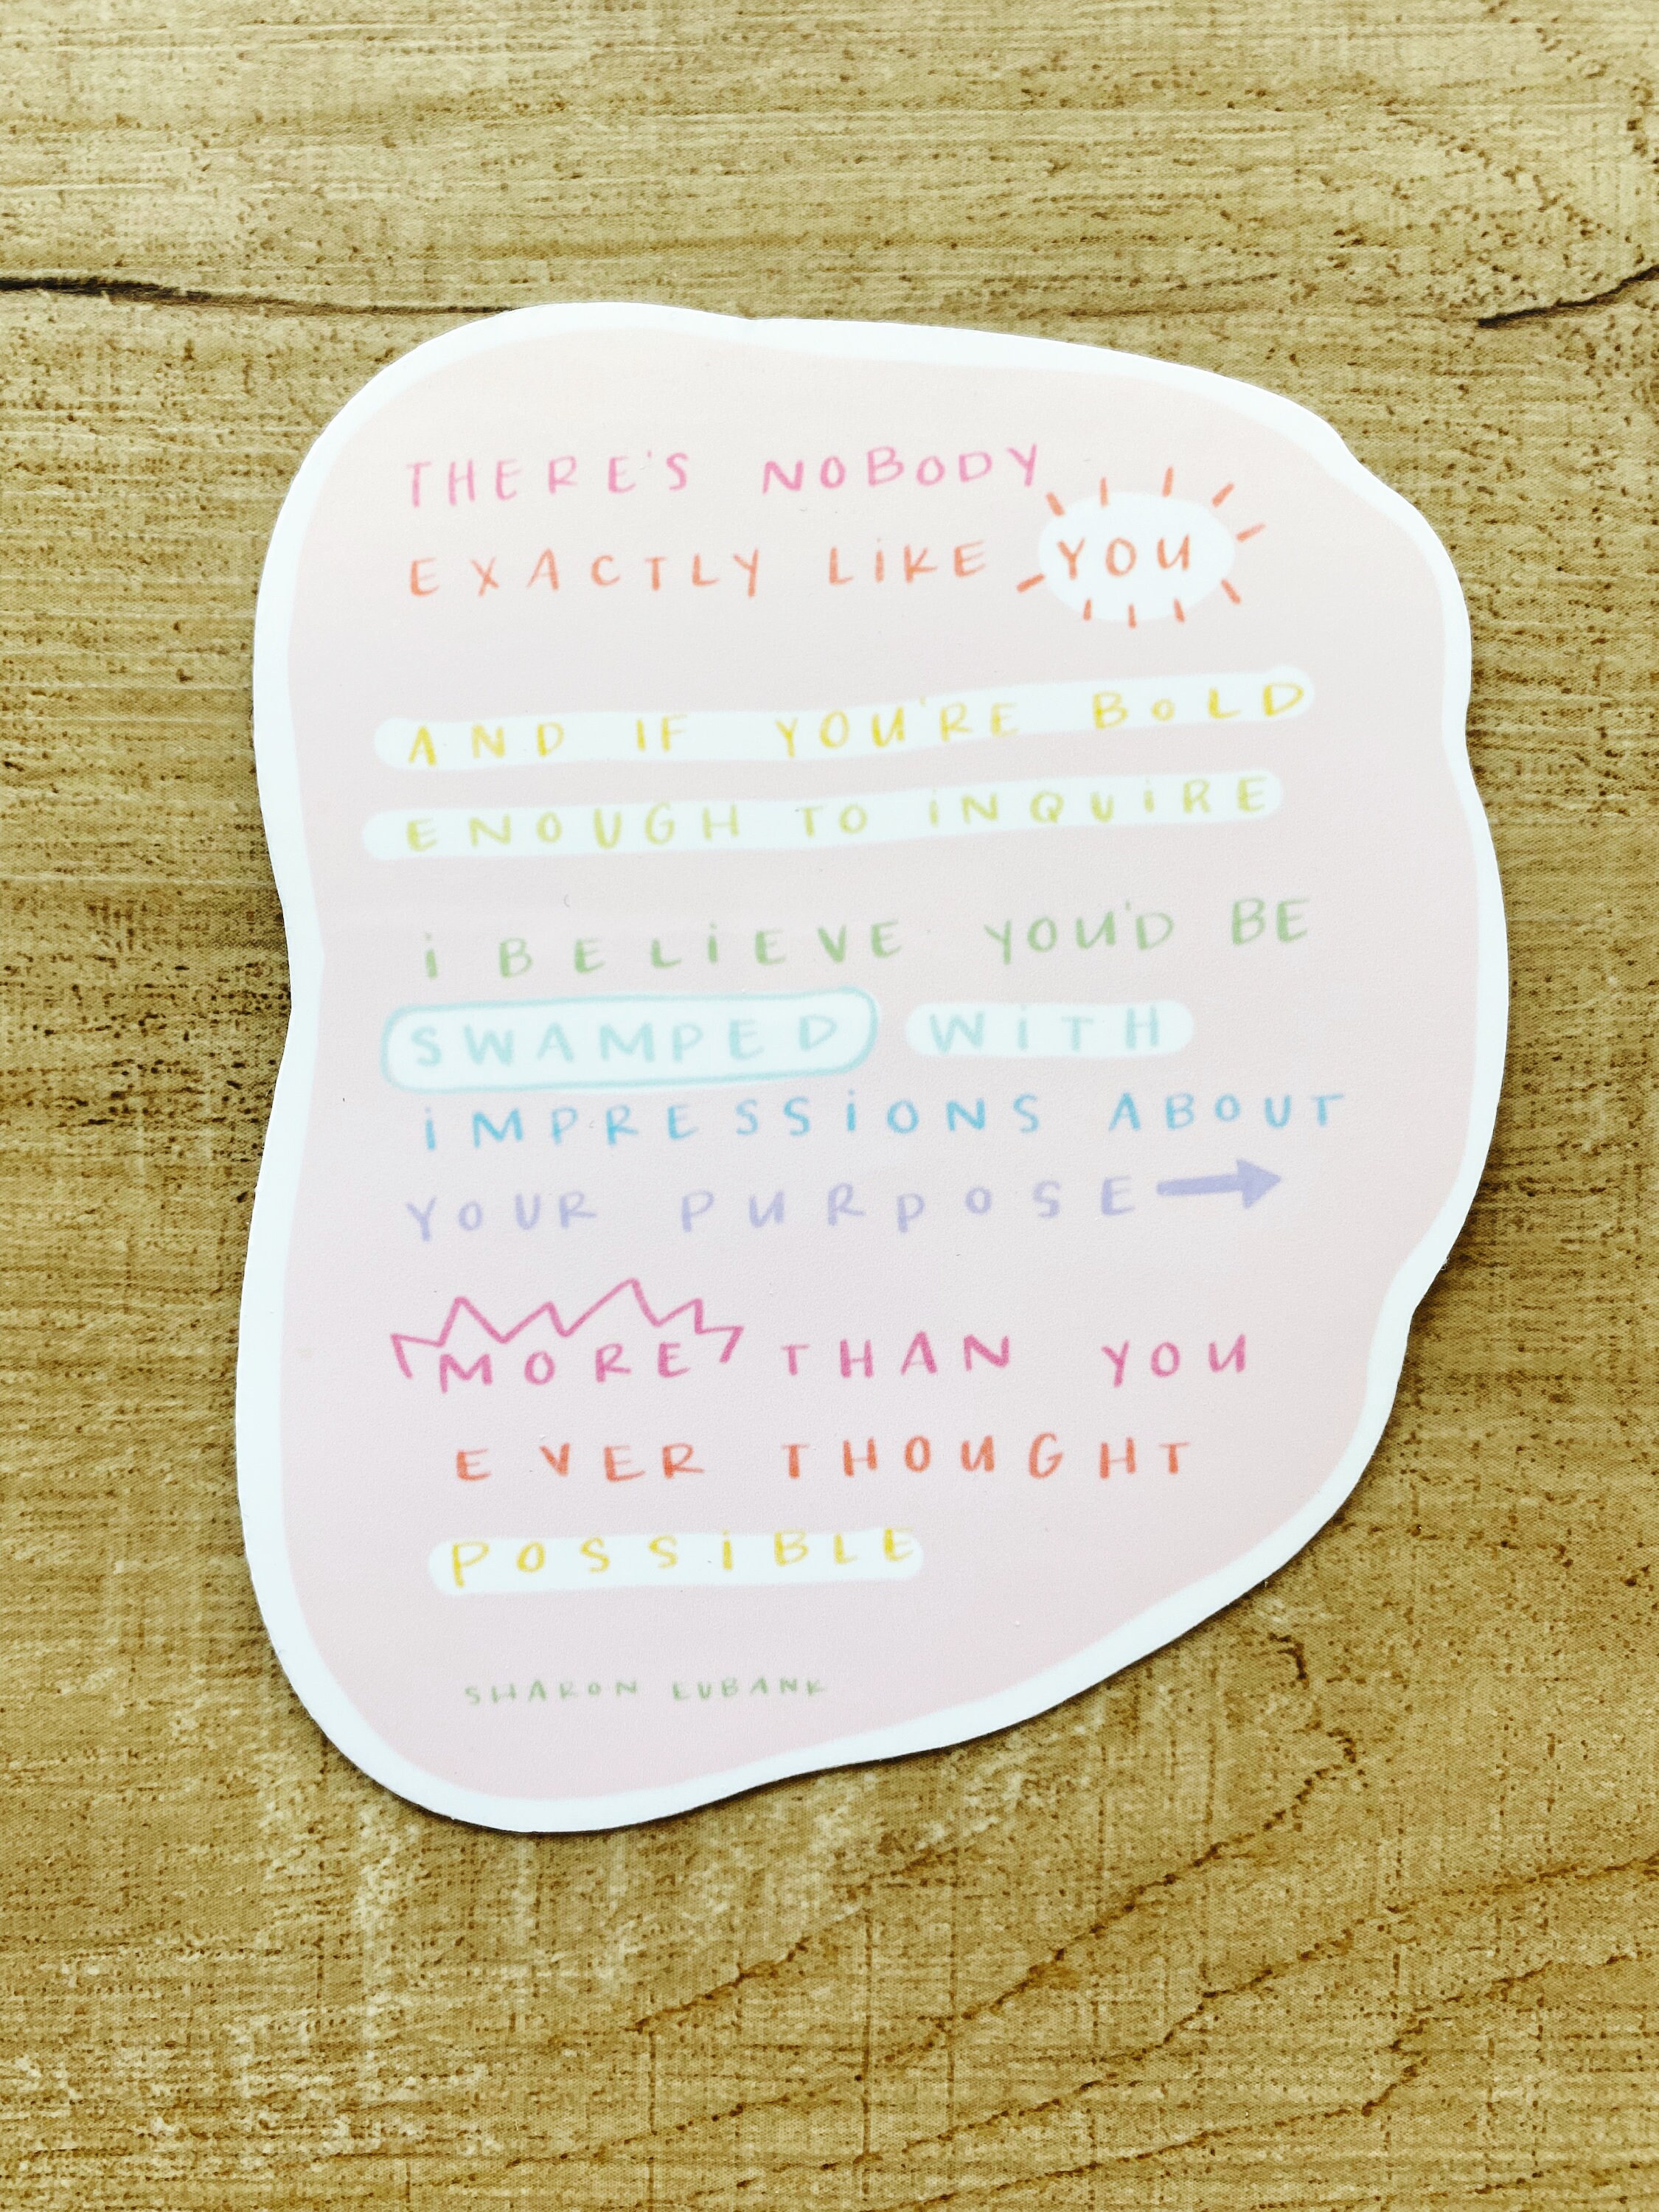 THERE'S NOBODY
EXACTLY LiKE YOU
AND IF YOU'RE BOLD
ENOUGH TO iNQUiRE
i BELiEVE YOU'D BE
SWAMPED WiTH
iMPRESSiONS ABOUT
YOUR PURPOSE
MORE THAN YOU
EVER THOUGHT
POSSiBLE
SHARON EUBANK